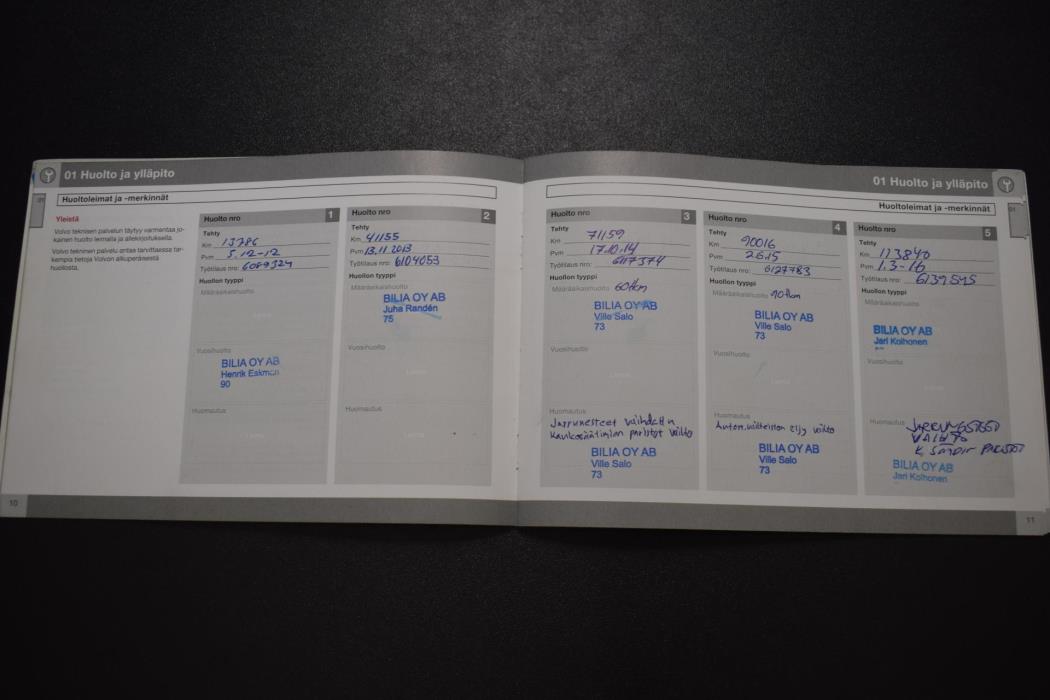 01 Huolto ja ylläpito
01
Huoltoleimat ja -merkinnät
Yleistä
Volvo teknisen palvelun täytyy varmentaa jo-
kainen huolto leimalla ja allekirjoituksella.
Volvo tekninen palvelu antaa tarvittaessa tar-
kempia tietoja Volvon alkuperäisestä
huollosta.
Huolto nro 1
Tehty
Km 13286
Pvm 5.12-12
Työtilaus nro:
Huollon tyyppi
Määräaikaishuolto
Vuosihuolto
BILIA OY AB
Henrik Eskman
90
Huomautus
Huolto nro 2
Tehty
Km 41155
Pvm 13.11.2013
Työtilaus nro: 6104053
Huollon tyyppi
Määräaikaishuolto
BILIA OY AB
Juha Randén
75
Vuosihuolto
Huomautus
10
01 Huolto ja ylläpito
Huoltoleimat ja -merkinnät
01
Huolto nro 3
Tehty
Km 71159
Pvm 17.10.14
Työtilaus nro: 6117374
Huollon tyyppi
Määräaikaishuolto 60tkm
BILIA OY AB
Ville Salo
73
Vuosihuolto
Huomautus
Jarrunesteet vaihdettu
Kaukosäätimien paristot vaihto
BILIA OY AB
Ville Salo
73
Huolto nro 4
Tehty
Km 90016
Pvm 2.6.15
Työtilaus nro: 6127783
Huollon tyyppi
Määräaikaishuolto 90tkm
BILIA OY AB
Ville Salo
73
Vuosihuolto
Huomautus
Autom.vaihteiston öljy vaihto
BILIA OY AB
Ville Salo
73
Huolto nro 5
Tehty
Km 113840
Pvm 1.3-16
Työtilaus nro: 6139545
Huollon tyyppi
Määräaikaishuolto
BILIA OY AB
Jari Kolhonen
Vuosihuolto
Huomautus
VAIHTO
PARISTOT
BILIA OY AB
Jari Kolhonen
11